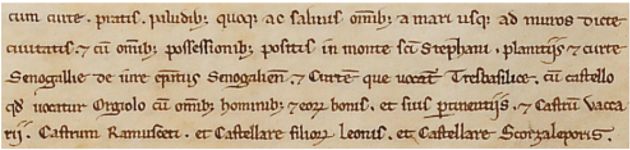 cum curte. pratis. paludib; quoq; ac saltus omib; a mari usq; ad muros dicte
ciuitatis. ⁊ cū omib; possessionib; positis in monte sci Stephani. planitijs ⁊ curte
Senogallie de iure Senogalien̄. ⁊ Curtē que uocat̄ Tresbasilice. cū castello
qd uocatur Orgiolo cū omib; hominib; ⁊ eoꝝ bonis. et suis ꝑtinentijs. ⁊ Castrū Vacca
rij. Castrum Ramusceti. et Castellare filioꝝ Leonis. et Castellare Scorzaleporis.